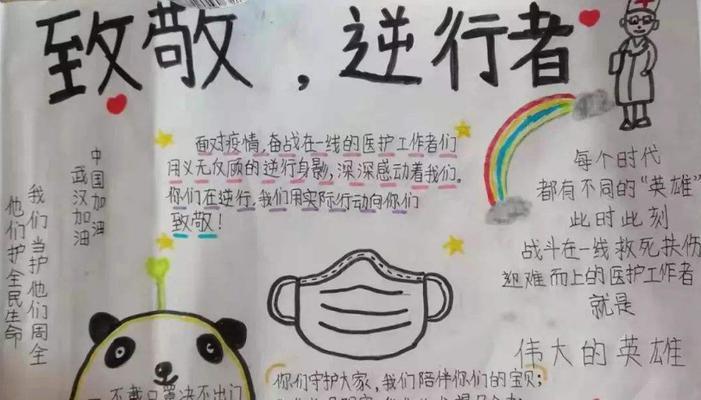 致敬，逆行者
中国加油
武汉加油
我们当护他们周全
他们护全民生命
面对疫情,奋战在一线的医护工作者们
用义无反顾的逆行身影,深深感动着我们。
你们在逆行,我们用实际行动向你们
致敬!
每个时代
都有不同的“英雄”
此时此刻
战斗在一线救死扶伤
迎难而上的医护工作者
就是
伟大的英雄
不戴口罩决不出门
你们守护大家,我们陪伴你们的宝贝;